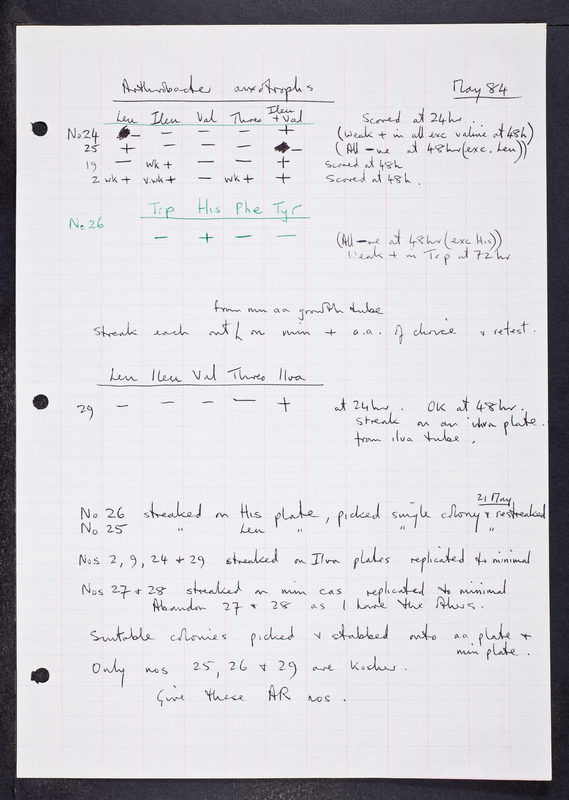 Arthrobacter auxotrophs May 84
Leu Ileu Val Threo Ileu + Val
No 24 – – – – + Scored at 24hr. (Weak + in all exc valine at 48h)
25 + – – – – (All –ve at 48hr (exc. Leu))
19 – wk + – – + Scored at 48h
2 wk + v.wk + – wk + + Scored at 48h.
Trp His Phe Tyr
No 26
– + – – (All –ve at 48hr (exc His))
Weak + in Trp at 72hr
from min aa growth tube
Streak each out on min + a.a. of choice & retest.
Leu Ileu Val Threo Ilva
29 – – – – + at 24hr. OK at 48hr.
streak on an ilva plate.
from ilva tube.
21 May
No 26 streaked on His plate, picked single colony & restreaked
No 25 " Leu " " "
Nos 2, 9, 24 + 29 streaked on Ilva plates replicated to minimal
Nos 27 + 28 streaked on min cas replicated to minimal
Abandon 27 + 28 as I have the others.
Suitable colonies picked & stabbed onto aa plate +
min plate.
Only nos 25, 26 + 29 are Kosher.
Give these AR nos.